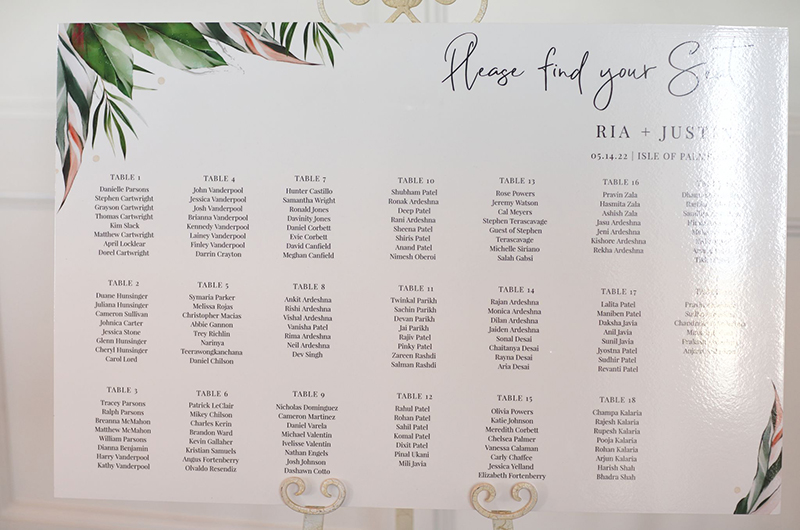 Please find your
RIA +
05.14.22 | ISLE OF
TABLE 1
Danielle Parsons
Stephen Cartwright
Grayson Cartwright
Thomas Cartwright
Kim Slack
Matthew Cartwright
April Locklear
Dorel Cartwright
TABLE 2
Duane Hunsinger
Juliana Hunsinger
Cameron Sullivan
Johnica Carter
Jessica Stone
Glenn Hunsinger
Cheryl Hunsinger
Carol Lord
TABLE 3
Tracey Parsons
Ralph Parsons
Breanna McMahon
Matthew McMahon
William Parsons
Dianna Benjamin
Harry Vanderpool
Kathy Vanderpool
TABLE 4
John Vanderpool
Jessica Vanderpool
Josh Vanderpool
Brianna Vanderpool
Kennedy Vanderpool
Lainey Vanderpool
Finley Vanderpool
Darrin Crayton
TABLE 5
Symaria Parker
Melissa Rojas
Christopher Macias
Abbie Gannon
Trey Richlin
Narinya
Teerawongkanchana
Daniel Chilson
TABLE 6
Patrick LeClair
Mikey Chilson
Charles Kerin
Brandon Ward
Kevin Gallaher
Kristian Samuels
Angus Fortenberry
Olvaldo Resendiz
TABLE 7
Hunter Castillo
Samantha Wright
Ronald Jones
Davinity Jones
Daniel Corbett
Evie Corbett
David Canfield
Meghan Canfield
TABLE 8
Ankit Ardeshna
Rishi Ardeshna
Vishal Ardeshna
Vanisha Patel
Rima Ardeshna
Neil Ardeshna
Dev Singh
TABLE 9
Nicholas Dominguez
Cameron Martinez
Daniel Varela
Michael Valentin
Ivelisse Valentin
Nathan Engels
Josh Johnson
Dashawn Cotto
TABLE 10
Shubham Patel
Ronak Ardeshna
Deep Patel
Rani Ardeshna
Sheena Patel
Shiris Patel
Anand Patel
Nimesh Oberoi
TABLE 11
Twinkal Parikh
Sachin Parikh
Devan Parikh
Jai Parikh
Rajiv Patel
Pinky Patel
Zareen Rashdi
Salman Rashdi
TABLE 12
Rahul Patel
Rohan Patel
Sahil Patel
Komal Patel
Dixit Patel
Pinal Ukani
Mili Javia
TABLE 13
Rose Powers
Jeremy Watson
Cal Meyers
Stephen Terascavage
Guest of Stephen
Terascavage
Michelle Siriano
Salah Gabsi
TABLE 14
Rajan Ardeshna
Monica Ardeshna
Dilan Ardeshna
Jaiden Ardeshna
Sonal Desai
Chaitanya Desai
Rayna Desai
Aria Desai
TABLE 15
Olivia Powers
Katie Johnson
Meredith Corbett
Chelsea Palmer
Vanessa Calaman
Carly Chaffee
Jessica Yelland
Elizabeth Fortenberry
TABLE 16
Pravin Zala
Hasmita Zala
Ashish Zala
Jasu Ardeshna
Jeni Ardeshna
Kishore Ardeshna
Rekha Ardeshna
TABLE 17
Lalita Patel
Maniben Patel
Daksha Javia
Anil Javia
Sunil Javia
Jyostna Patel
Sudhir Patel
Revanti Patel
TABLE 18
Champa Kalaria
Rajesh Kalaria
Rupesh Kalaria
Pooja Kalaria
Rohan Kalaria
Arjun Kalaria
Harish Shah
Bhadra Shah